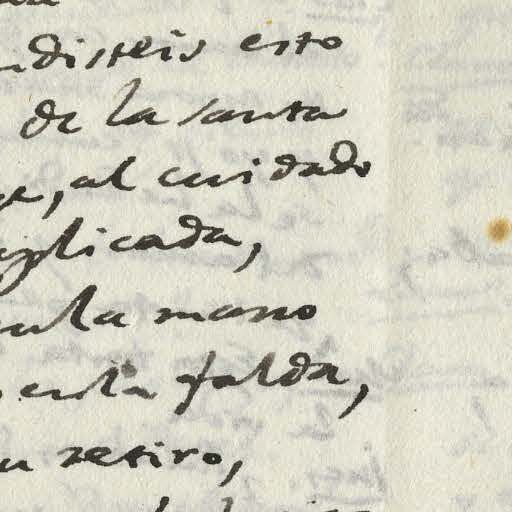 ndisteis esto
de la santa
, al cuidado
plicada,
en la mano
en la falda,
su retiro,